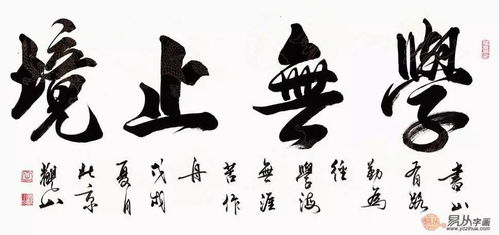 學無止境
書山
有路
勤為
徑
學海
無涯
苦作
舟
戊戌
夏月
北京
觀山
易从字画
www.yczihua.com